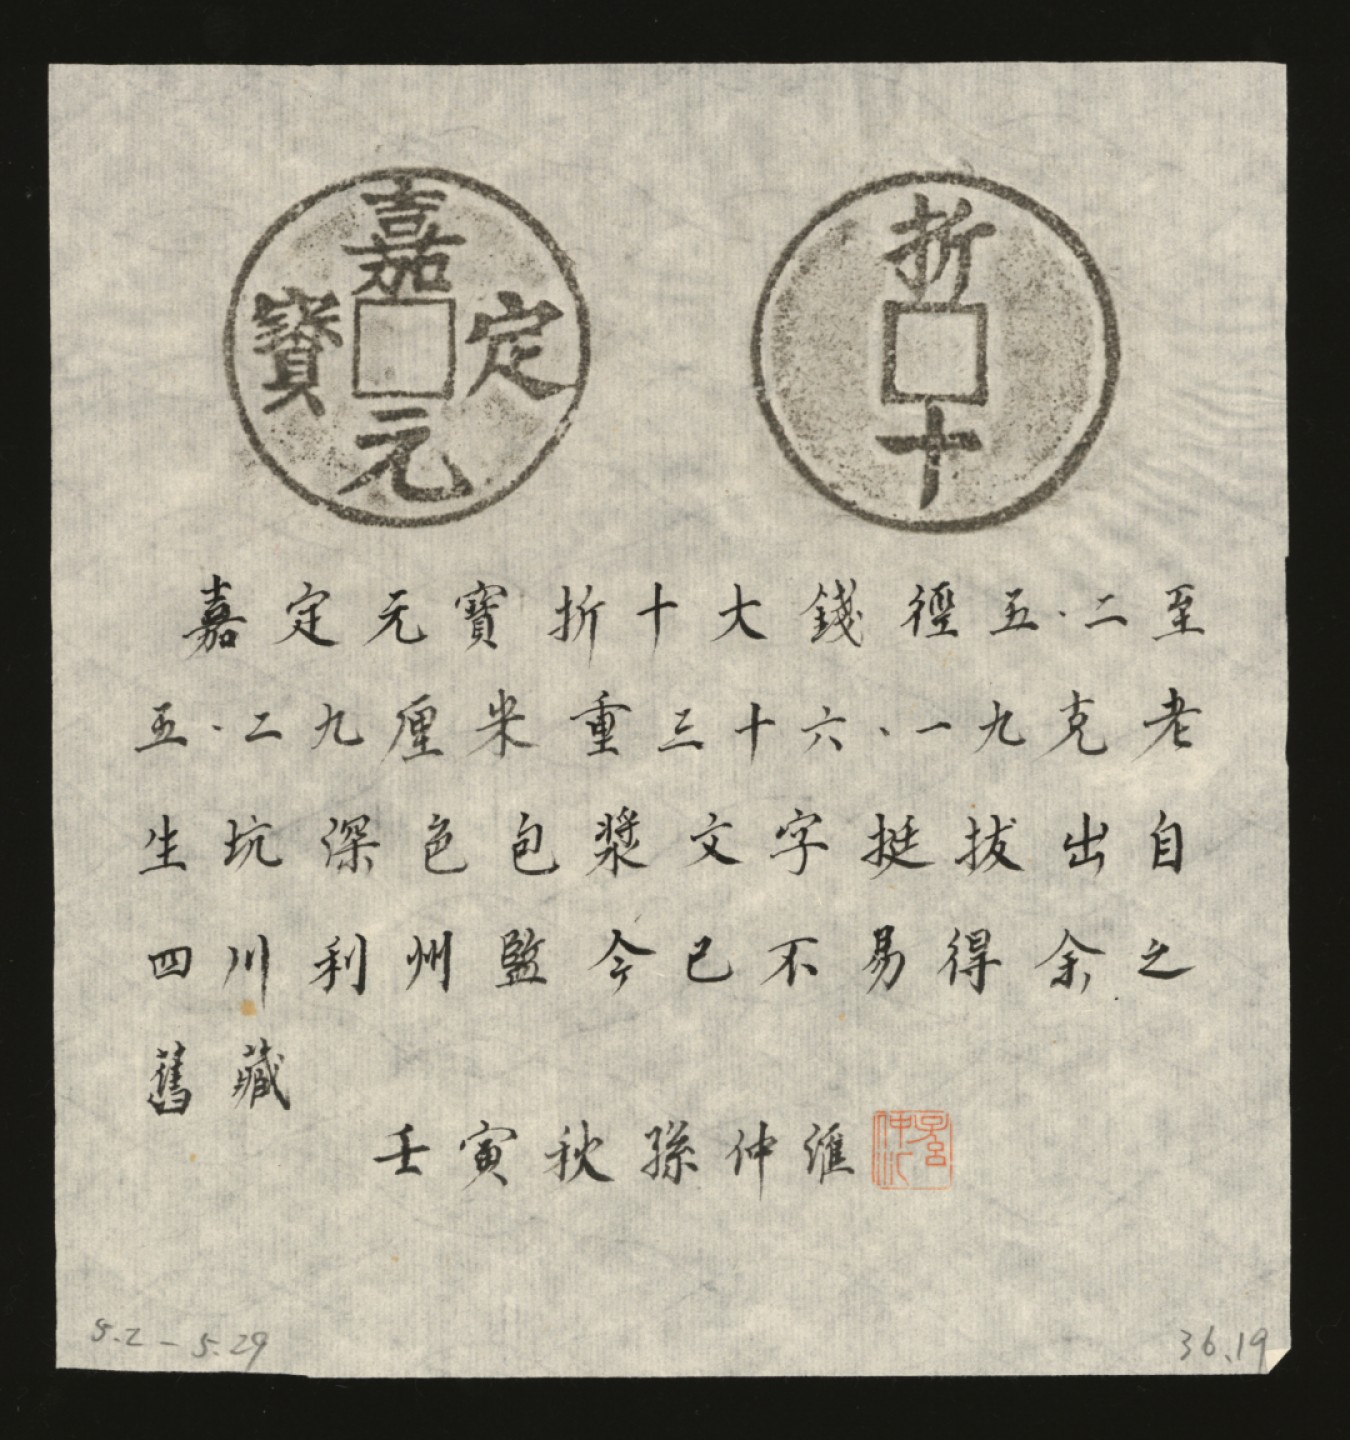 嘉定元寶
折十
嘉定元寶折十大錢徑五.二至
五.二九厘米重三十六.一九克老
生坑深色包漿文字挺拔出自
四川利州監今已不易得余之
舊藏
壬寅秋孫仲滙
5.2-5.29
36.19